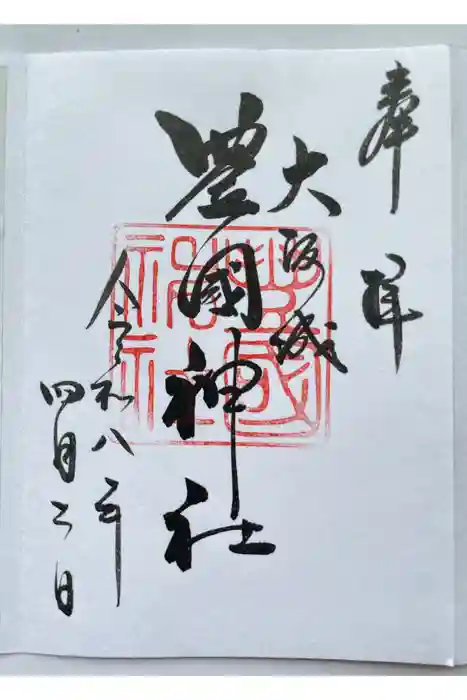 奉拝
大阪城
豊國神社
豊國神社
令和八年
四月二日